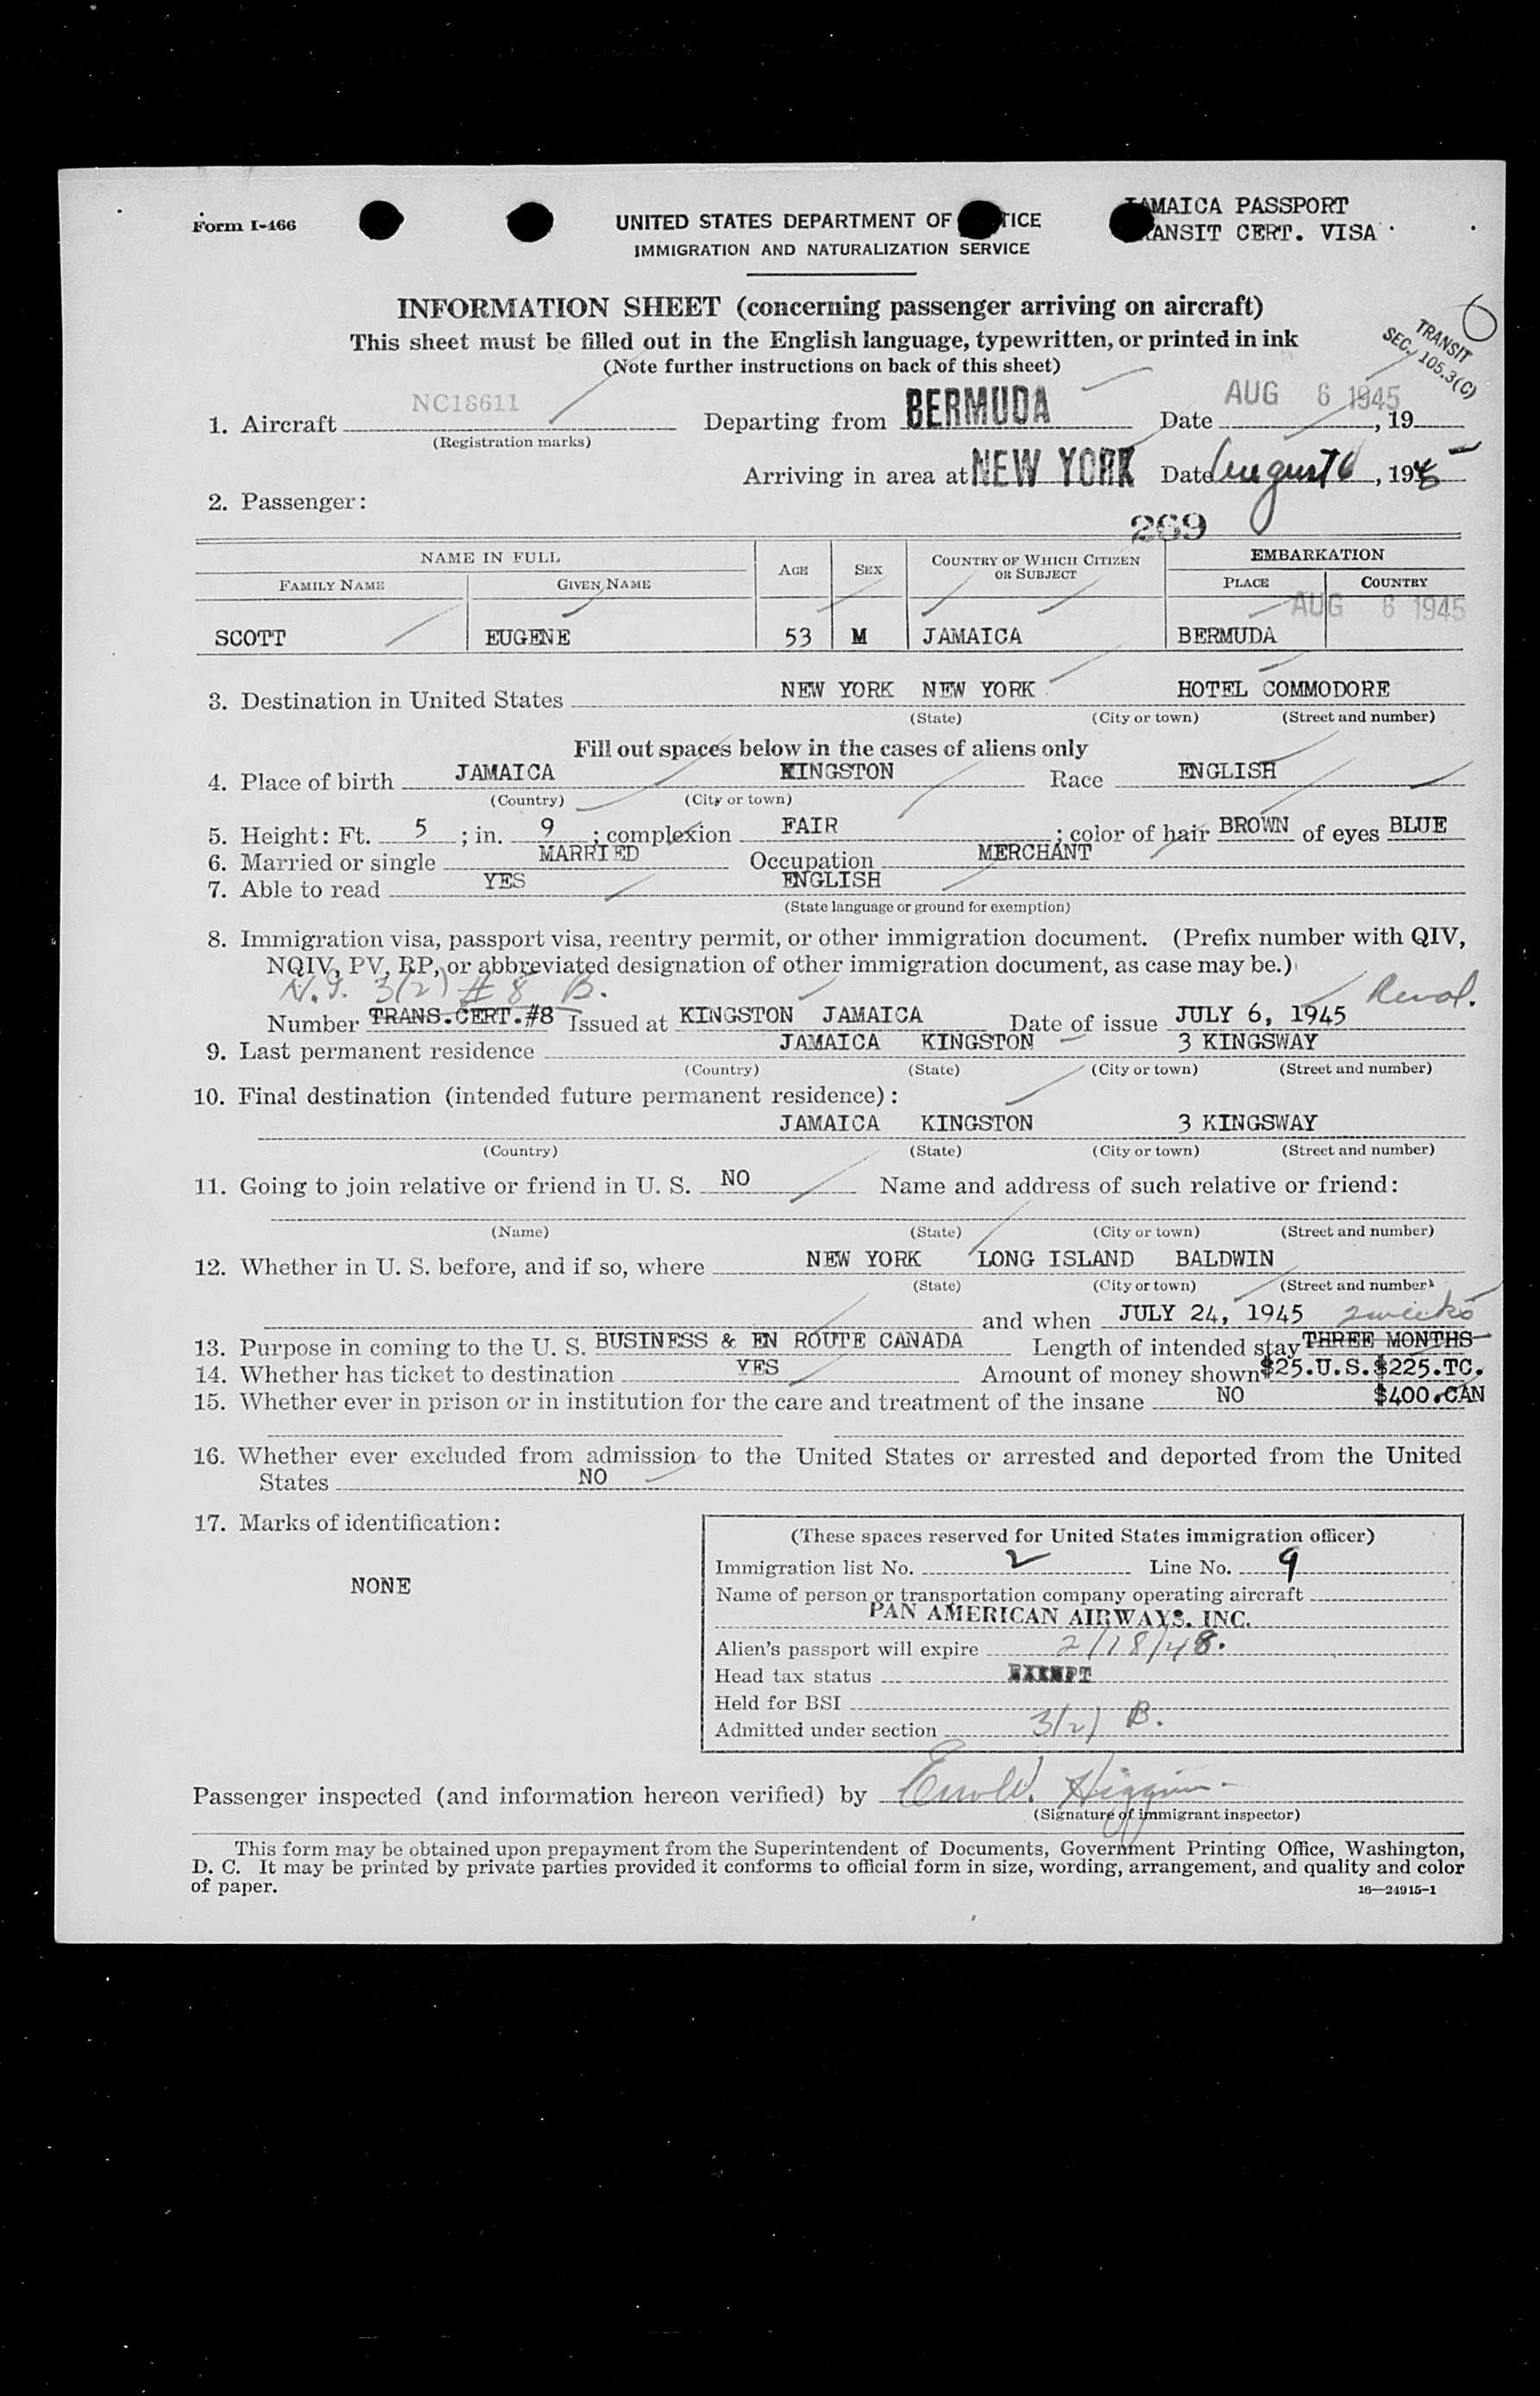 Form I-466
UNITED STATES DEPARTMENT OF TICE
IMMIGRATION AND NATURALIZATION SERVICE
AMAICA PASSPORT
ANSIT CERT. VISA
INFORMATION SHEET (concerning passenger arriving on aircraft)
This sheet must be filled out in the English language, typewritten, or printed in ink
(Note further instructions on back of this sheet)
TRANSIT
SEC. 105.3(C)
1. Aircraft NC18611 Departing from BERMUDA Date AUG 6 1945, 19
(Registration marks)
Arriving in area at NEW YORK Date August 6, 1945
2. Passenger:
269
NAME IN FULL AGE SEX COUNTRY OF WHICH CITIZEN OR SUBJECT EMBARKATION
FAMILY NAME GIVEN NAME PLACE COUNTRY
AUG 6 1945
SCOTT EUGENE 53 M JAMAICA BERMUDA
3. Destination in United States NEW YORK NEW YORK HOTEL COMMODORE
(State) (City or town) (Street and number)
Fill out spaces below in the cases of aliens only
4. Place of birth JAMAICA KINGSTON Race ENGLISH
(Country) (City or town)
5. Height: Ft. 5; in. 9; complexion FAIR; color of hair BROWN of eyes BLUE
6. Married or single MARRIED Occupation MERCHANT
7. Able to read YES ENGLISH
(State language or ground for exemption)
8. Immigration visa, passport visa, reentry permit, or other immigration document. (Prefix number with QIV,
NQIV, PV, RP, or abbreviated designation of other immigration document, as case may be.)
N.I. 3(2) # 8 B.
Number TRANS.CERT.#8 Issued at KINGSTON JAMAICA Date of issue JULY 6, 1945
9. Last permanent residence JAMAICA KINGSTON 3 KINGSWAY
(Country) (State) (City or town) (Street and number)
10. Final destination (intended future permanent residence):
JAMAICA KINGSTON 3 KINGSWAY
(Country) (State) (City or town) (Street and number)
11. Going to join relative or friend in U. S. NO Name and address of such relative or friend:
(Name) (State) (City or town) (Street and number)
12. Whether in U. S. before, and if so, where NEW YORK LONG ISLAND BALDWIN
(State) (City or town) (Street and number)
and when JULY 24, 1945 2 weeks
13. Purpose in coming to the U. S. BUSINESS & EN ROUTE CANADA Length of intended stay THREE MONTHS
14. Whether has ticket to destination YES Amount of money shown $25.U.S.$225.TC.
15. Whether ever in prison or in institution for the care and treatment of the insane NO $400.CAN
16. Whether ever excluded from admission to the United States or arrested and deported from the United
States NO
17. Marks of identification:
NONE
(These spaces reserved for United States immigration officer)
Immigration list No. 2 Line No. 9
Name of person or transportation company operating aircraft
PAN AMERICAN AIRWAYS. INC.
Alien's passport will expire 2/18/48.
Head tax status EXEMPT
Held for BSI
Admitted under section 3(2) B.
Passenger inspected (and information hereon verified) by
(Signature of immigrant inspector)
This form may be obtained upon prepayment from the Superintendent of Documents, Government Printing Office, Washington,
D. C. It may be printed by private parties provided it conforms to official form in size, wording, arrangement, and quality and color
of paper.
16—24915-1